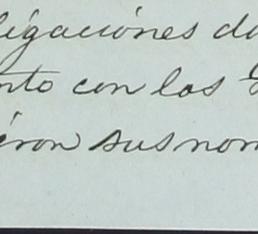 ligaciones d
nto con los
eron sus nom